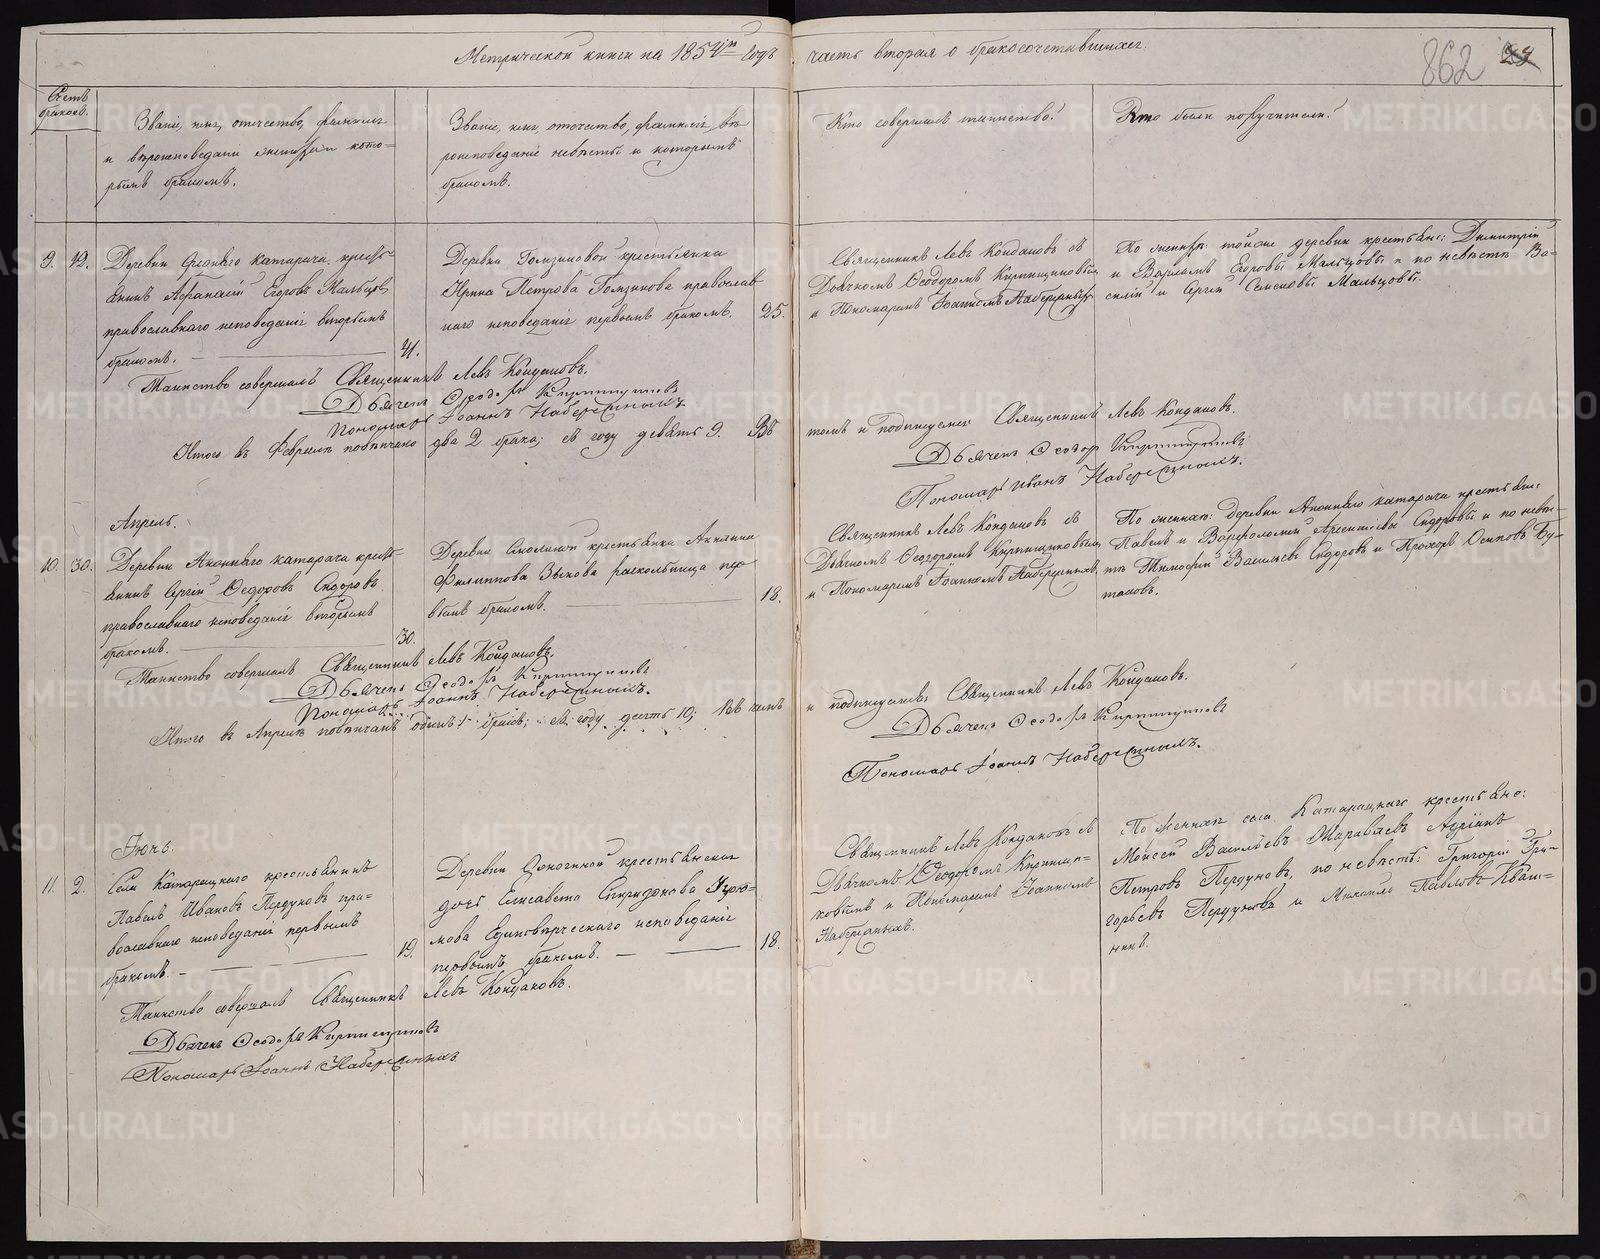 Метрической книги на 1854й годъ часть вторая о бракосочетавшихся.
862
Счетъ браковъ.
Званіе, имя, отчество, фамилія
и вѣроисповѣданіе жениха и кото-
рымъ бракомъ.
Званіе, имя, отечество, фамилія, вѣ-
роисповѣданіе невѣсты и которымъ
бракомъ.
Кто совершалъ таинство?
Кто были поручители?
9. 12.
Деревни катарача кресть-
янинъ Афанасій Егоровъ Мальцовъ
православнаго исповѣданія вторымъ
бракомъ.
41.
Деревни Голзиновой крестьянка
Ирина Петрова Голзинова православ
наго исповѣданія первымъ бракомъ.
25.
Священникъ Левъ Кондаковъ съ
Дьячкомъ Ѳеодоромъ Кирпищиковымъ
и Пономаремъ Іоанномъ Набережныхъ
По женихѣ: тойже деревни крестьяне: Димитрій
и Варламъ Егоровы Мальцовы и по невѣстѣ Ва-
силій и Сергій Самсоновы Мальцовы.
Таинство совершалъ Священникъ Левъ Кондаковъ.
Дьячекъ Ѳеодоръ Кирпищиковъ
Пономарь Іоаннъ Набережныхъ
Итого въ Февралѣ повѣнчано два 2 брака; въ году девять 9. Въ
томъ и подпищемся Священникъ Левъ Кондаковъ.
Дьячекъ Ѳеодоръ Кирпищиковъ
Пономарь Иванъ Набережныхъ.
Апрель.
10. 30.
Деревни катарача кресть-
янинъ Сергій Ѳедоровъ Сидоровъ
православнаго исповѣданія вторымъ
бракомъ.
30.
Деревни Смолиной крестьянка Акилина
Филиппова Зыкова раскольница пер-
вымъ бракомъ.
18.
Священникъ Левъ Кондаковъ съ
Дьячкомъ Ѳеодоромъ Кирпищиковымъ
и Пономаремъ Іоанномъ Набережныхъ
По женихѣ: деревни катарача крестьяне
Павелъ и Варфоломей Арсентьевы Сидоровы и по невѣс-
тѣ Тимофей Васильевъ Сидоровъ и Прохоръ Осиповъ Бу-
таковъ.
Таинство совершалъ Священникъ Левъ Кондаковъ.
Дьячекъ Ѳеодоръ Кирпищиковъ
Пономарь Іоаннъ Набережныхъ.
Итого въ Апрелѣ повѣнчанъ одинъ 1 бракъ; въ году десять 10; Въ чемъ
и подпишемся, Священникъ Левъ Кондаковъ.
Дьячекъ Ѳеодоръ Кирпищиковъ
Пономарь Іоаннъ Набережныхъ.
11. 2.
Села Катарацкаго крестьянинъ
Павелъ Ивановъ Пердуновъ пра-
вославнаго исповѣданія первымъ
бракомъ.
19.
Деревни крестьянская
дочь Елисавета Спиридонова
Единовѣрческаго исповѣданія
первымъ бракомъ.
18.
Священникъ Левъ Кондаковъ съ
Дьячкомъ Ѳеодоромъ Кирпищи-
ковымъ и Пономаремъ Іоанномъ
Набережныхъ.
По женихѣ села Катарацкаго крестьяне:
Моисей Васильевъ Жаравлевъ Адріанъ
Петровъ Пердуновъ, по невѣстѣ: Григорій Гри-
горьевъ Пердуновъ и Михаилъ Павловъ Кваш-
нинъ.
Таинство совершалъ Священникъ Левъ Кондаковъ.
Дьячекъ Ѳеодоръ Кирпищиковъ
Пономарь Іоаннъ Набережныхъ
METRIKI.GASO-URAL.RU